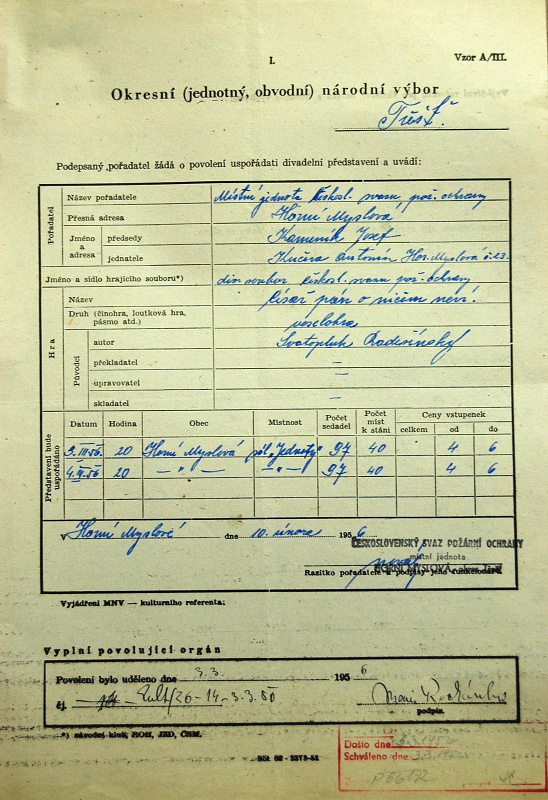 I.
Vzor A/III.
Okresní (jednotný, obvodní) národní výbor
Třešť.
Podepsaný pořadatel žádá o povolení uspořádati divadelní představení a uvádí:
Pořadatel
Název pořadatele Místní jednota českosl. svazu pož. ochrany
Přesná adresa Horní Myslová
Jméno a adresa předsedy Kameník Josef
jednatele Kučera Antonín Hor. Myslová č. 23.
Jméno a sídlo hrajícího souboru*) div. soubor českosl. svazu pož. ochrany
Hra
Název Císař pán o ničem neví!
Druh (činohra, loutková hra, pásmo atd.) veselohra
Původci
autor Svatopluk Radešínský
překladatel —
upravovatel —
skladatel —
Představení bude uspořádáno
Datum Hodina Obec Místnost Počet sedadel Počet míst k stání Ceny vstupenek celkem od do
3.III.56. 20 Horní Myslová sál „Jednoty" 97 40 4 6
4.III.56 20 — „ — — „ — 97 40 4 6
V Horní Myslové dne 10. února 1956
ČESKOSLOVENSKÝ SVAZ POŽÁRNÍ OCHRANY
místní jednota
HORNÍ MYSLOVÁ,
Razítko pořadatele a podpisy jeho funkcionářů
Vyjádření MNV — kulturního referenta:
Vyplní povolující orgán
Povolení bylo uděleno dne 3.3. 1956
čj.
podpis.
*) národní klub, ROH, JZD, ČSM.
Došlo dne
Schváleno dne